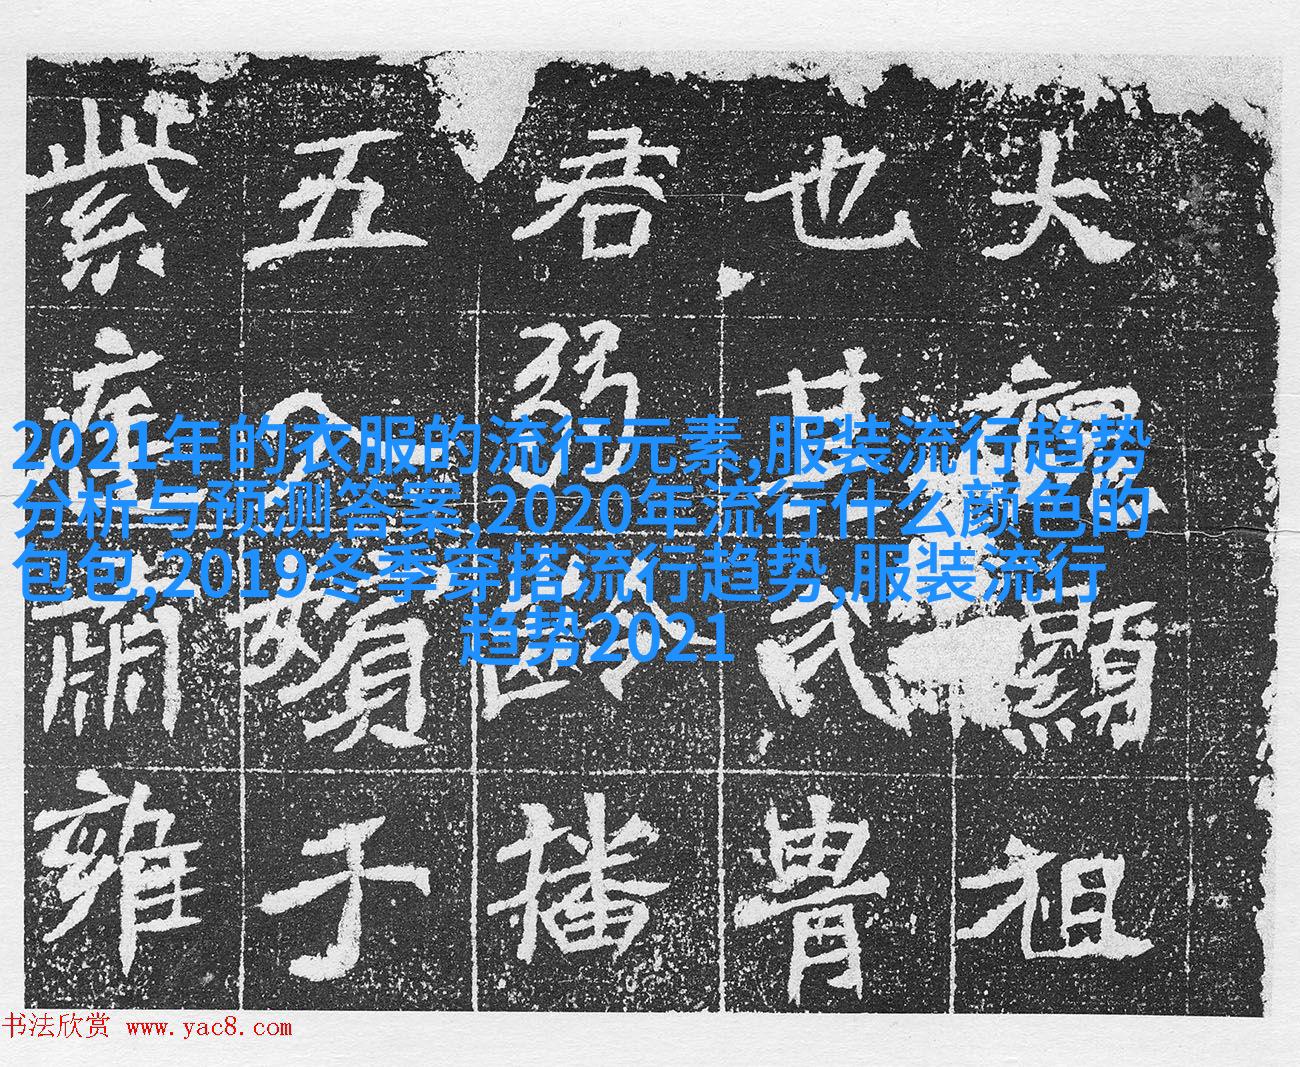 大顯祖
也其氏胄
君弱齡播
五于
紫肅雍
2021年的衣服的流行元素,服装流行趋势
分析与预测答案,2020年流行什么颜色的
包包,2019冬季穿搭流行趋势,服装流行
趋势2021
书法欣赏 www.yac8.com